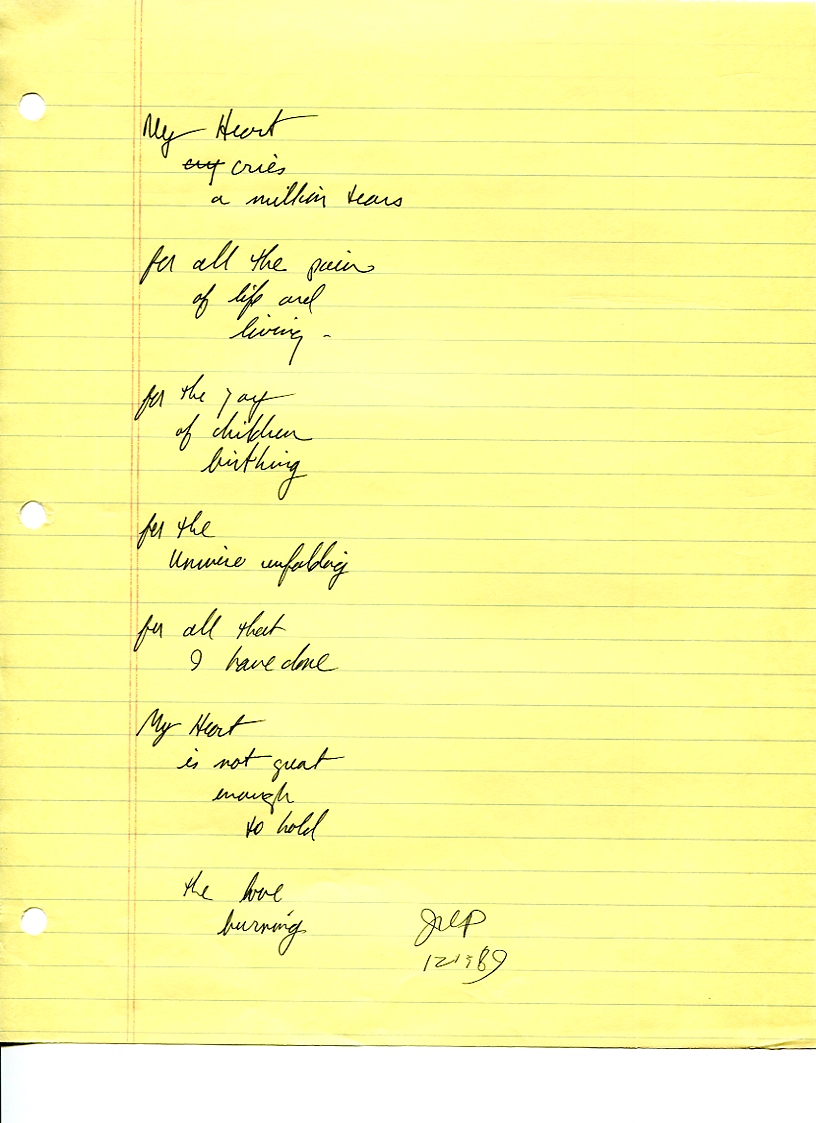 My Heart
cry cries
a million tears
for all the pain
of life and
living -
for the joy
of children
birthing
for the
Universe unfolding
for all that
I have done
My Heart
is not great
enough
to hold
the love
burning